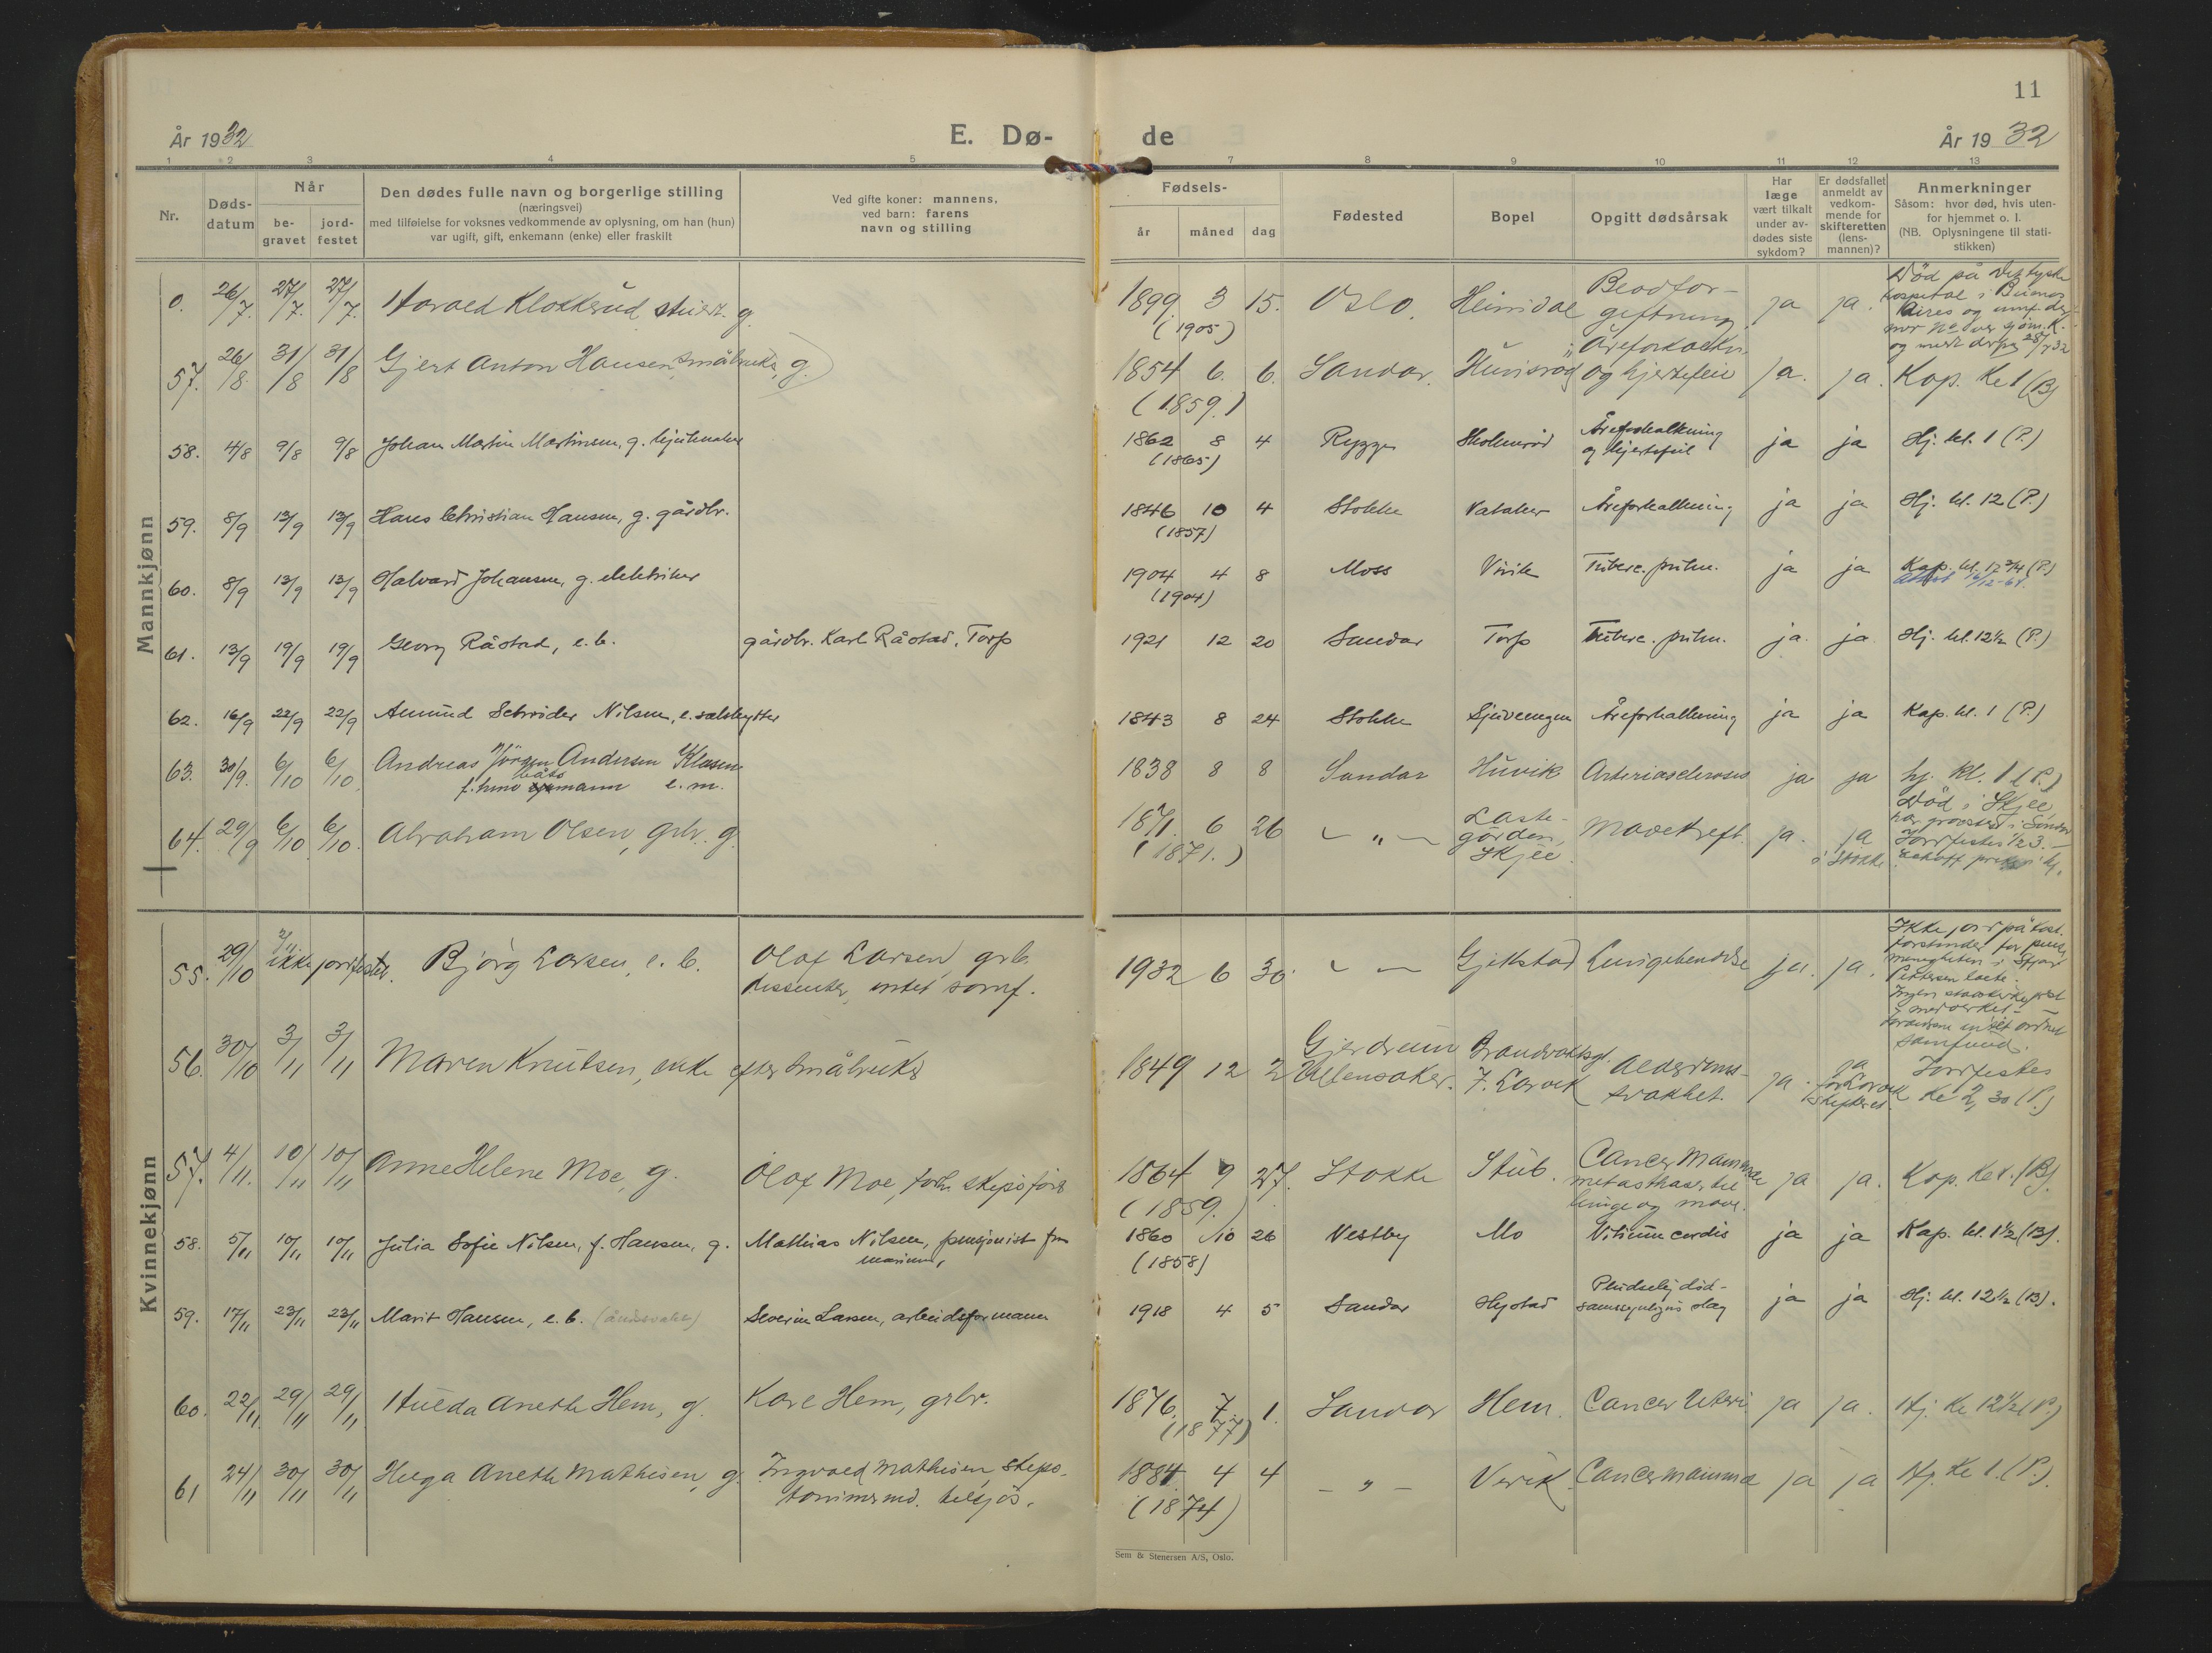 11
År 1932 E. Dø- de År 1932
1 2 3 4 5 7 8 9 10 11 12 13
Nr.
Døds-
datum
Når
be-
gravet
jord-
festet
Den dødes fulle navn og borgerlige stilling
(næringsvei)
med tilføielse for voksnes vedkommende av oplysning, om han (hun)
var ugift, gift, enkemann (enke) eller fraskilt
Ved gifte koner: mannens,
ved barn: farens
navn og stilling
Fødsels-
år måned dag
Fødested
Bopel
Opgitt dødsårsak
Har
læge
vært tilkalt
under av-
dødes siste
sykdom?
Er dødsfallet
anmeldt av
vedkom-
mende for
skifteretten
(lens-
mannen)?
Anmerkninger
Såsom: hvor død, hvis uten-
for hjemmet o. l.
(NB. Oplysningene til stati-
stikken)
Mannkjønn
0. 26/7. 27/7. 27/7. Harald Klokkerud g. 1899 3 15. Oslo. Heimdal Blodfor-
giftning ja ja. Død på det tyske
hospital i Buenos
Aires og
(1905)
57. 26/8. 31/8 31/8 Gjert Anton Hansen småbruks, g. 1854 6. 6. Sandar. Åreforkalkn.
og hjertefeil ja. ja. Kap. Kl 1 (B)
(1859.)
58. 4/8 9/8 9/8 Johan Martin Martinsen, g. 1862 8 4 Rygge Åreforkalkning
og hjertefeil ja ja Hj. kl. 1 (P.)
(1865)
59. 8/9 13/9 13/9 Hans Christian Hansen, g. gårdbr. 1846 10 4 Stokke Åreforkalkning ja ja Hj. kl. 12 (P.)
(1857)
60. 8/9 13/9 13/9 Halvard Johansen, g. elektriker 1904 4 8 Moss Virik Tuberc. pulm. ja ja Kap. kl. 12 3/4 (P.)
(1904)
61. 13/9 19/9 19/9 Georg Råstad, e. b. gårdbr. Karl Råstad, Torp 1921 12 20 Sandar Torp Tuberc. pulm. ja. ja. Hj. kl. 12 1/2 (P.)
62. 16/9 22/9 22/9 Amund Schrøder Nilsen, 1843 8 24 Stokke Åreforkalkning ja ja Kap. kl. 1 (P.)
63. 30/9. 6/10 6/10. Andreas Jörgen Andersen Klasen
båts
mann e. m. 1838 8 8 Sandar Huvik Arteriosclerosis ja ja hj. Kl. 1 (P.)
64. 29/9 6/10 6/10. Abraham Olsen, grbr. g. 1871. 6 26 — „ — Laste-
gården,
Skjee. Mavekreft. ja. ja
i Stokke Død i Skjee
Jordfestes
(1871.)
Kvinnekjønn
55. 29/10 ikke jordfestet. Bjørg Larsen, e. b. Olaf Larsen, grb.
dissenter, intet samf. 1932 6 30. — — Gjekstad Lungebetendelse ja. ja. Ikke
forstander for
menigheten i
Pettersen
samfund.
56. 30/10 3/11 3/11 Maren Knutsen, enke efter småbruks 1849 12 2 Gjerdrum
Ullensaker. Alderdoms-
svakhet. ja. ja
for Larvik
skifteret. Jordfestes
Kl 2,30 (P.)
57. 4/11. 10/11 10/11 Anne Helene Moe, g. Olaf Moe, forh. skipsfører 1864 9 27. Stokke Stub. Cancer Mammae
metasthaser til
lunge og mave. ja ja. Kap. Kl 1. (B).
(1859.)
58. 5/11 10/11 10/11 Julia Sofie Nilsen, f. Hansen, g. Mathias Nilsen, pensjonist fra
marinen, 1860 10 26 Vestby Mo Vitium cordis ja ja Kap. kl. 1 1/2 (B).
(1858)
59. 17/11 23/11 23/11 Marit Hansen, e. b. (åndssvak) Severin Larsen, arbeidsformann 1918 4 5 Sandar Hystad Pludselig død-
sannsynligvis slag ja ja Hj. kl. 12 1/2 (B).
60. 22/11. 29/11 29/11. Hulda Anette Hem, g. Karl Hem, grbr. 1876. 7. 1. Sandar Hem. Cancer Uteri ja ja. Hj. Kl 12 1/2 (P.)
(1877)
61 24/11 30/11 30/11 Helga Anette Mathisen, g. Ingvald Mathisen, skips-
tømmermd. tilsjös. 1884 4 4 — „ — Verik. Cancer mamma ja ja Hj. Kl 1. (P.).
(1874)
Sem & Stenersen A/S, Oslo.